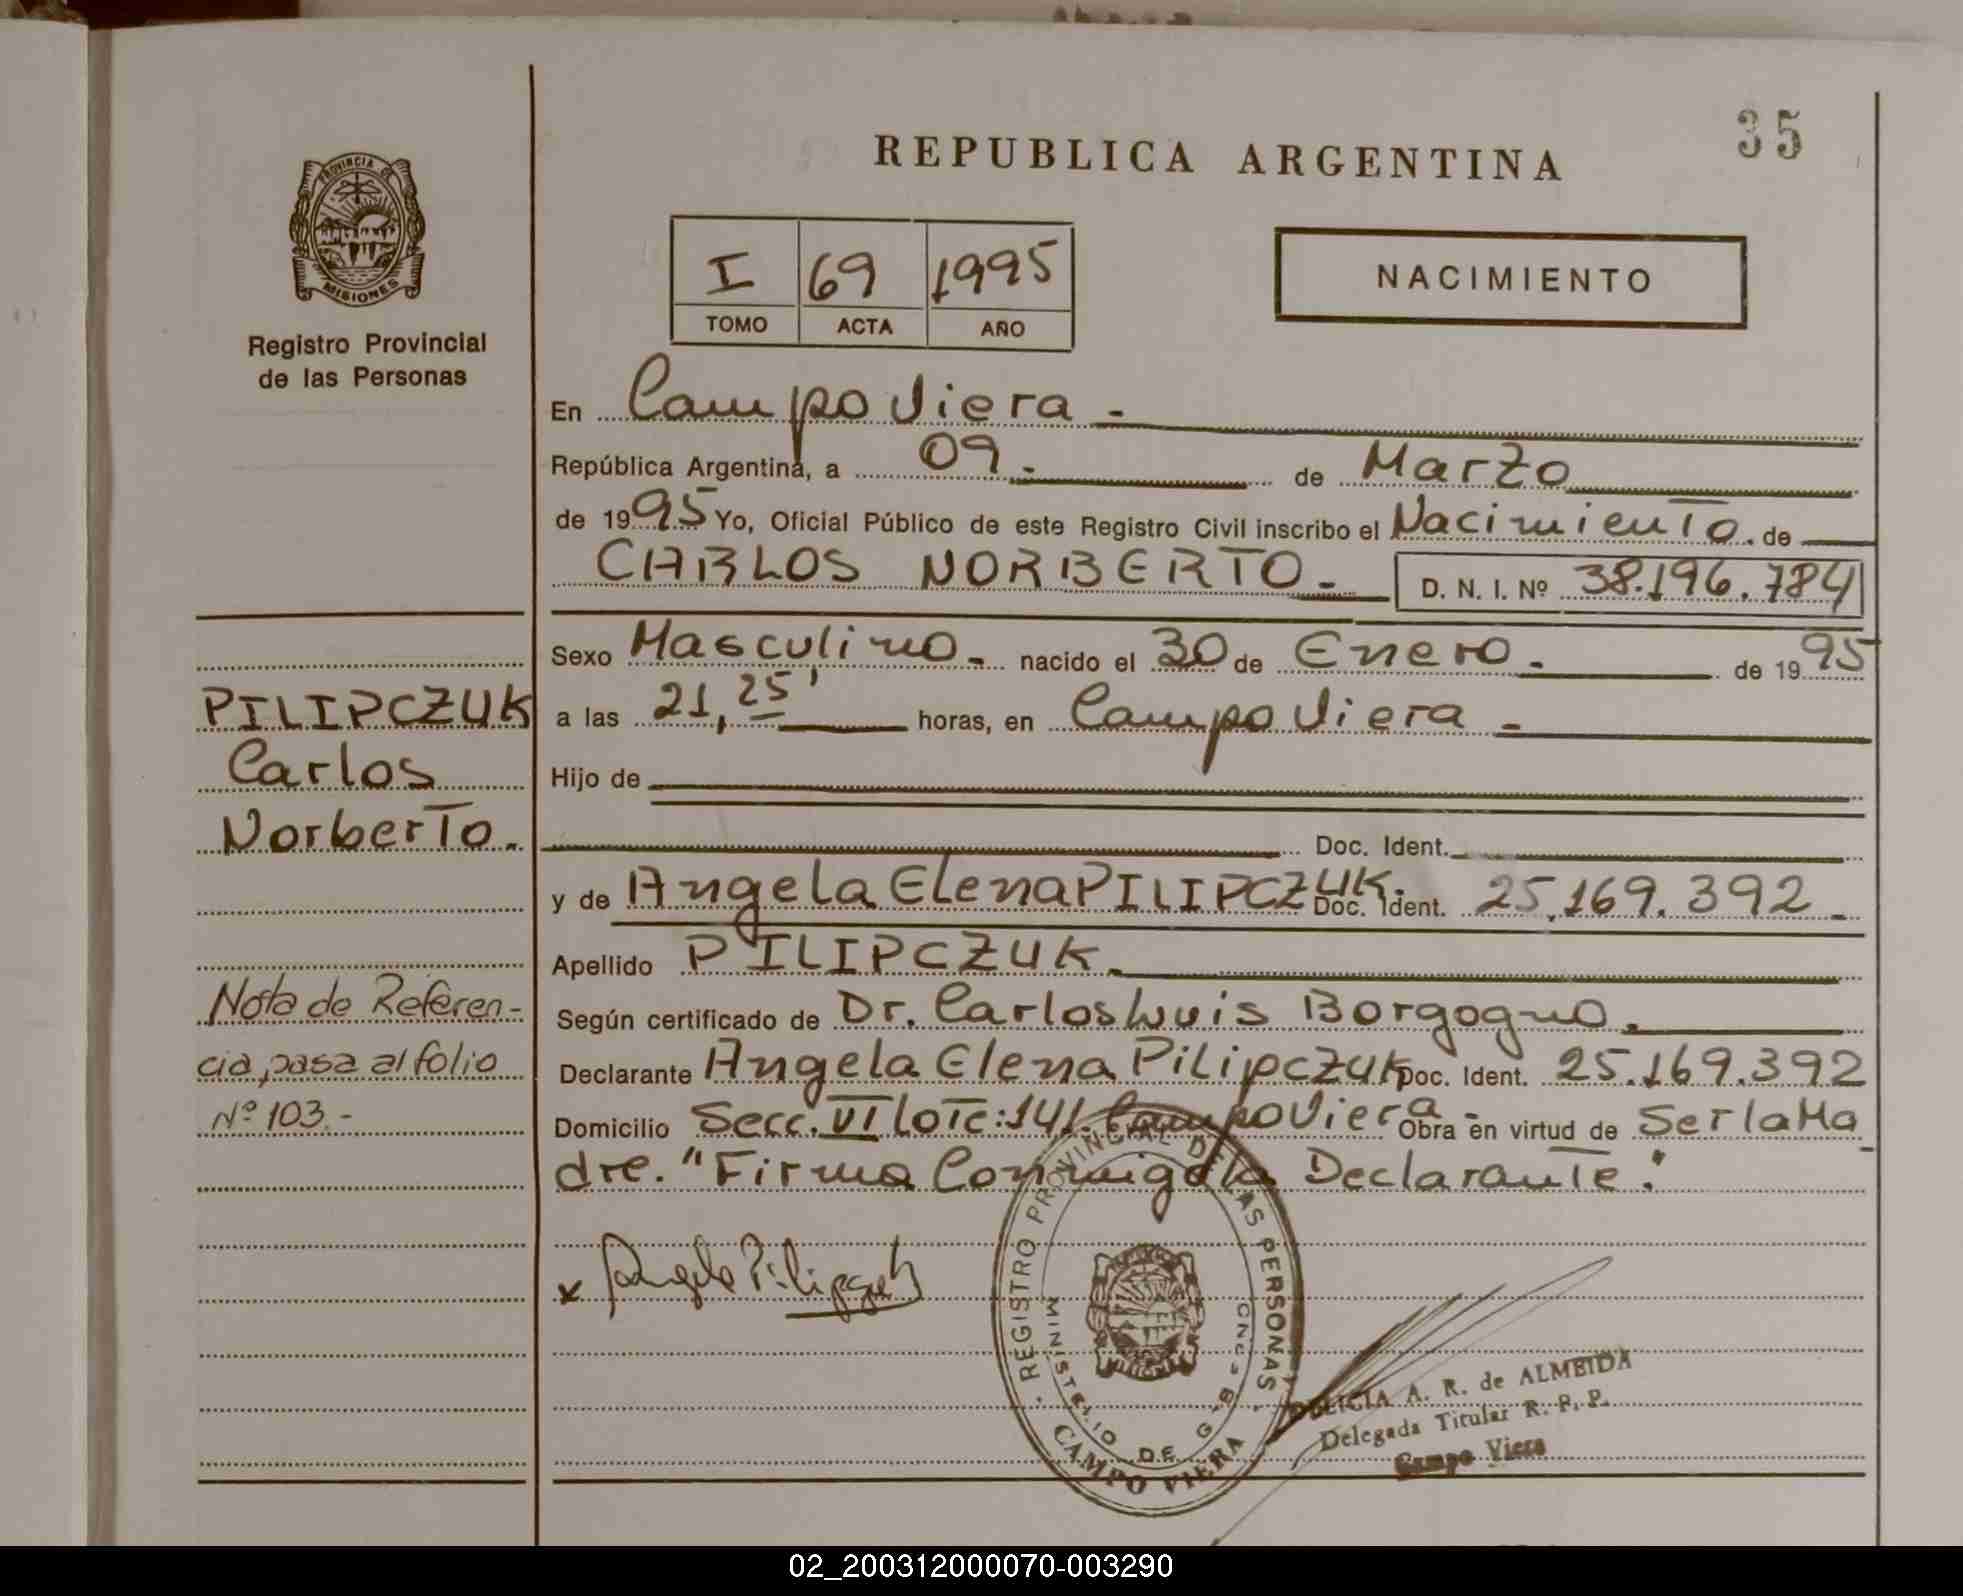 35
REPUBLICA ARGENTINA
PROVINCIA DE
MISIONES
Registro Provincial
de las Personas
I 69 1995
TOMO ACTA AÑO
NACIMIENTO
En Campo Viera.-
República Argentina, a 09.- de Marzo
de 1995 Yo, Oficial Público de este Registro Civil inscribo el Nacimiento. de
CARLOS NORBERTO.- D. N. I. Nº 38.196.784
Sexo Masculino.- nacido el 30 de Enero.- de 1995
a las 21,25' horas, en Campo Viera.-
Hijo de
Doc. Ident.
y de Angela Elena PILIPCZUK. Doc. Ident. 25.169.392.-
Apellido PILIPCZUK.
Según certificado de Dr. Carlos Luis Borgogno.
Declarante Angela Elena Pilipczuk Doc. Ident. 25.169.392
Domicilio Secc. VI Lote: 141. Campo Viera.- Obra en virtud de Ser la Ma
dre. "Firma Conmigo la Declarante".
PILIPCZUK
Carlos
Norberto.
Nota de Referen-
cia, pasa al folio
Nº 103.-
x Angela Pilipczuk
REGISTRO PROVINCIAL DE LAS PERSONAS
MINISTERIO DE G
CAMPO VIERA
A. R. de ALMEIDA
Delegada Titular R. P. P.
Campo Viera
02_200312000070-003290